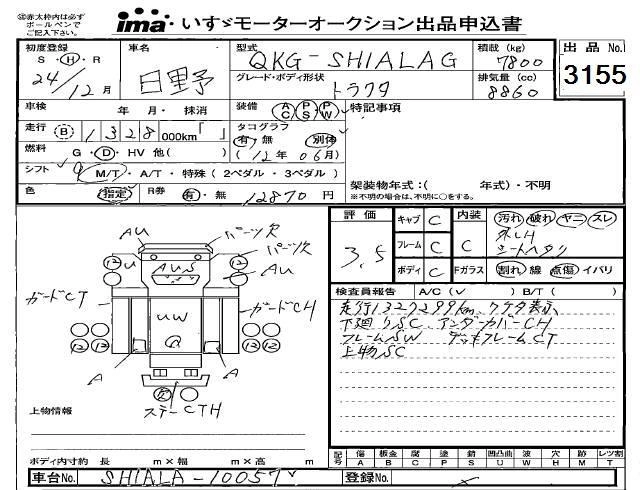 ㊟赤太枠内は必ず
ボールペンで
ご記入下さい。
ima いすゞモーターオークション出品申込書
初度登録
S・H・R
24/12月
車名
日野
型式
QKG-SH1ALAG
積載 (kg)
7800
出品 No.
3155
グレード・ボディ形状
トラクタ
排気量 (cc)
8860
車検 年 月・ 抹消
装備 AC PS PW
特記事項
走行 (B) 1328 000km「 」
タコグラフ
有・無 別体
(12年06月)
燃料 G・D・HV 他( )
シフト 9 M/T・A/T・特殊(2ペダル・3ペダル)
架装物年式:( 年式)・不明
※不明の場合は、不明に○をする。
色 指定 R券 有・無 12870円
評価
3.5
キャブ C
フレーム C
ボディ C
内装 C
Fガラス
汚れ 破れ ヤニ スレ
シートヘタリ
割れ 線 点傷 イバリ
検査員報告 A/C(レ) B/T( )
走行1327299km
下廻りSC、アンダーカバーCH
フレームSW デッキフレームCT
上物SC
AU
パーツ欠
パーツ欠
AU
12
U
AUS
12
ガードCT
ガードCH
UW
Q
12 12
12 12
A
A
欠
ステーCTH
上物情報
ボディ内寸約 長 m×幅 m×高 m
記号
傷 A
板金 B
腐 C
塗 P
錆 S
凹凸曲 U
波 W
穴 H
跡 M
レツ割 T
車台No. SH1ALA-10057
登録No.